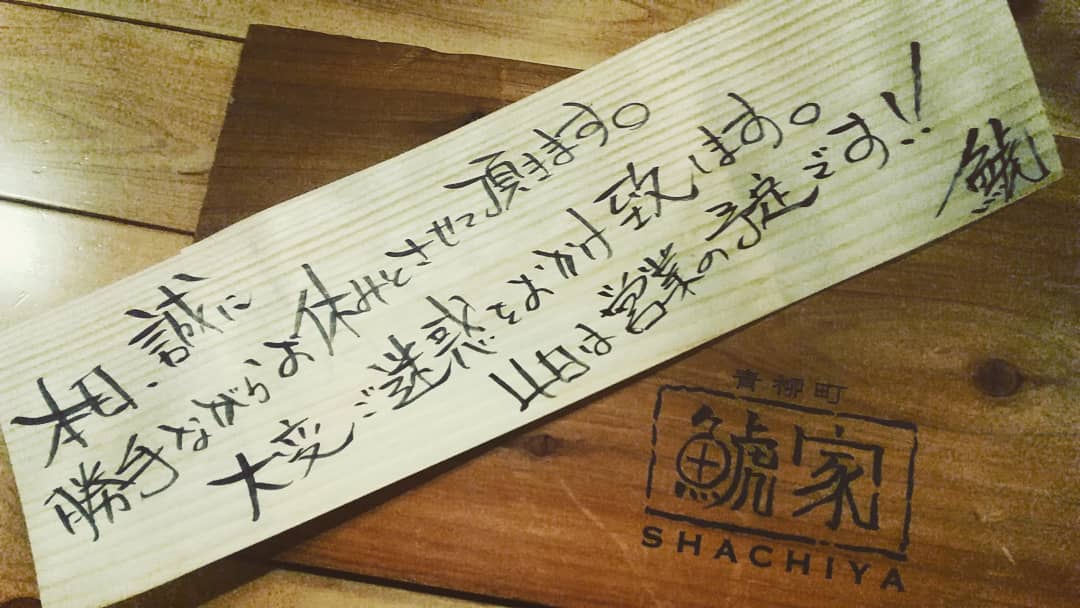 本日、誠に
勝手ながらお休みとさせて頂きます。
大変ご迷惑をおかけ致します。
明日は営業の予定です!!
鯱
青柳町
鯱家
SHACHIYA